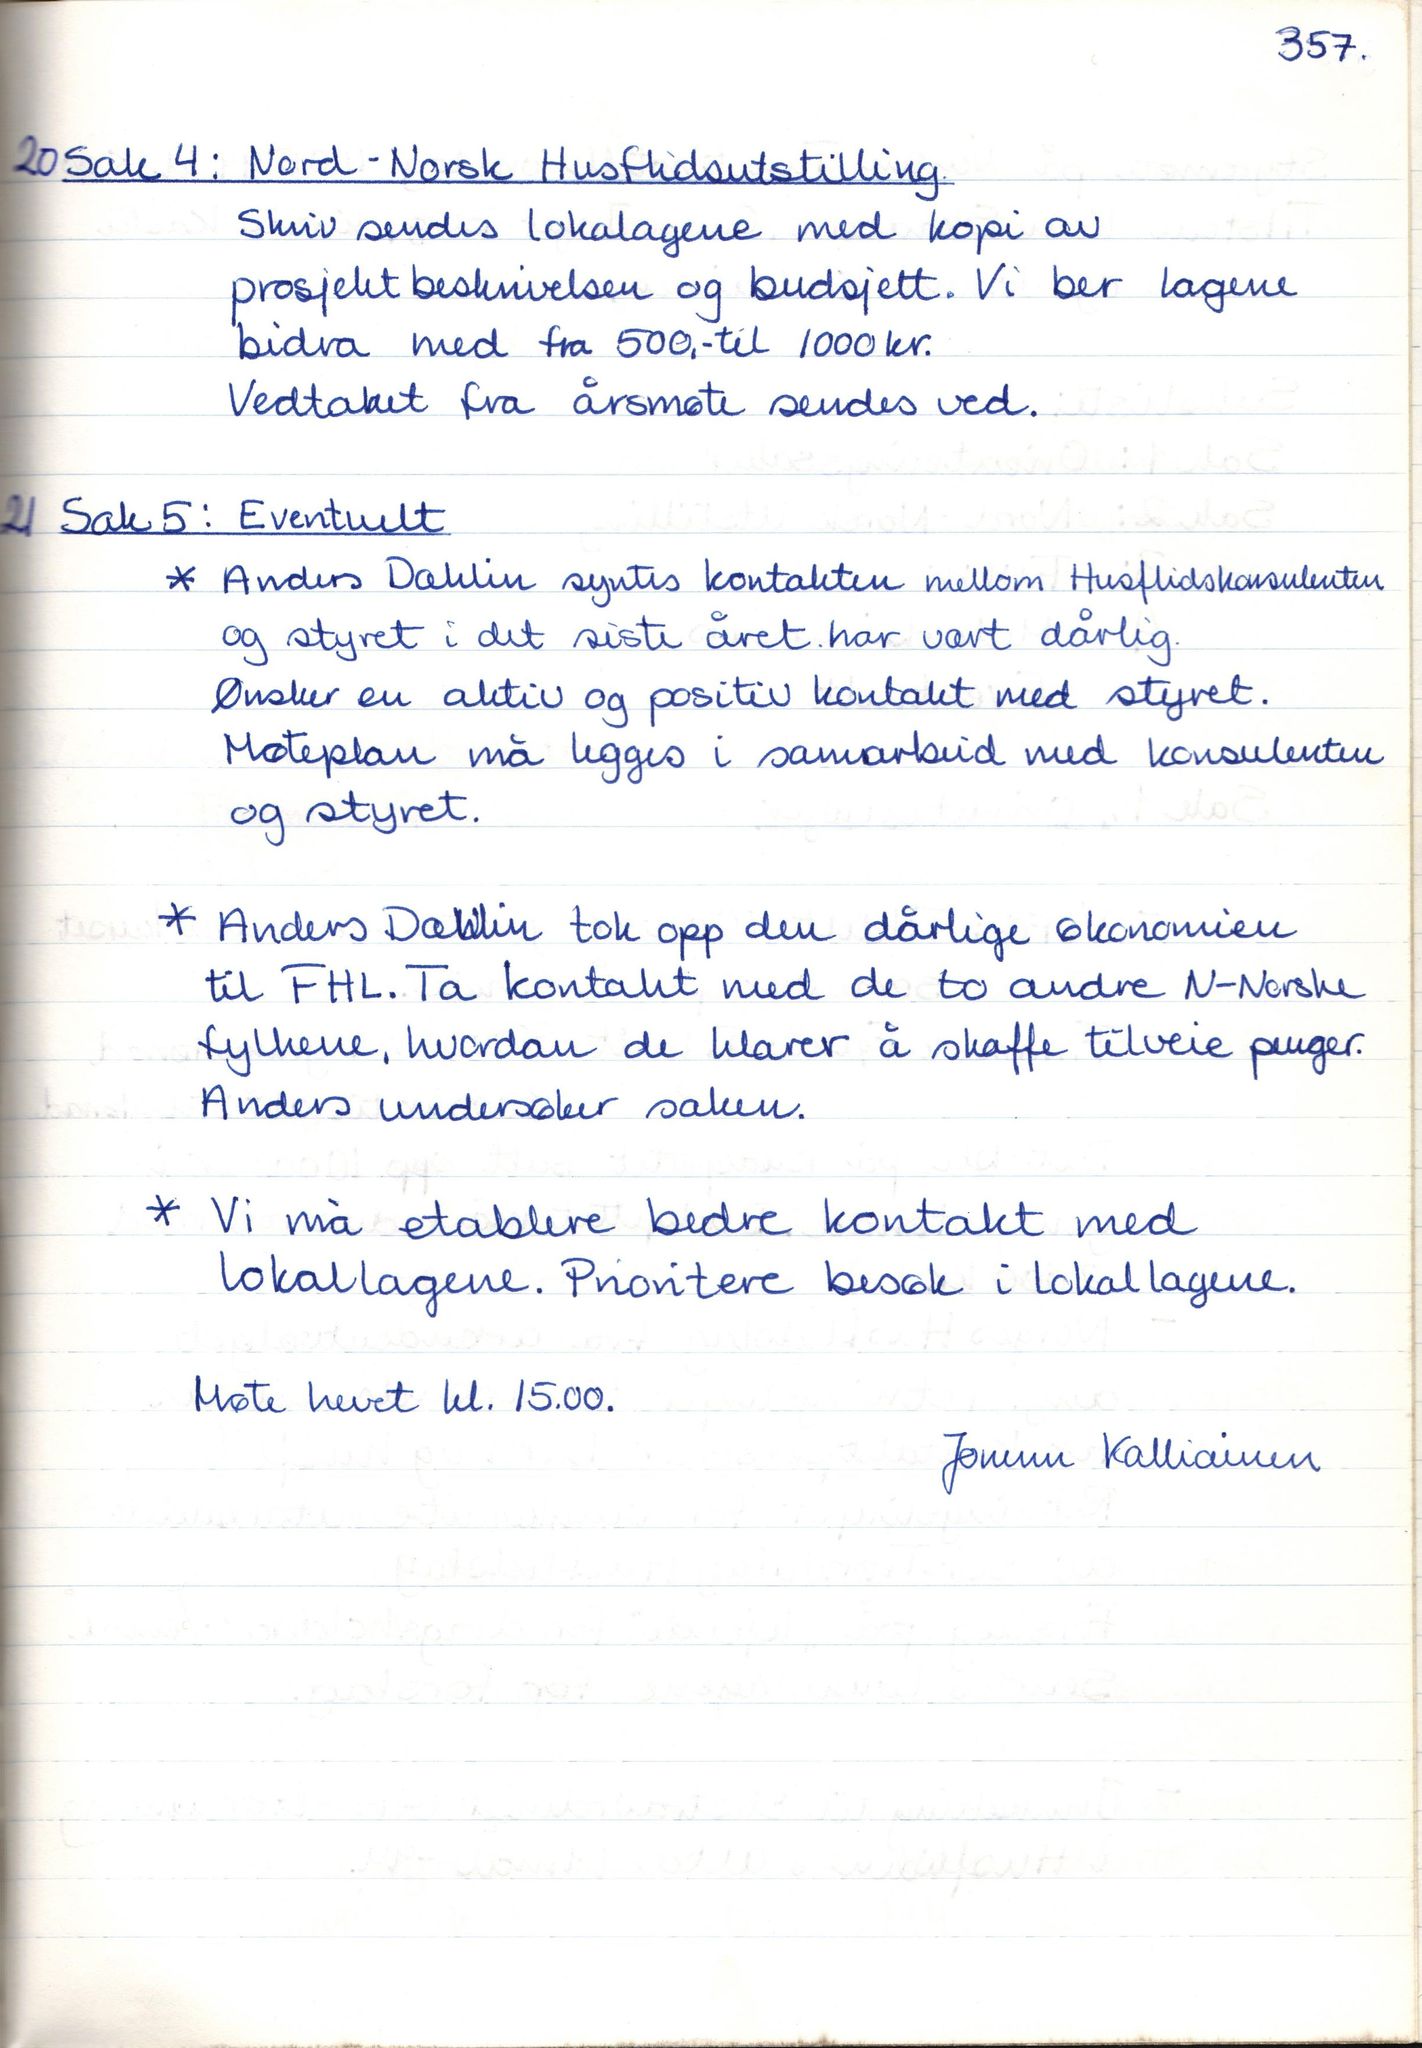 357.
20 Sak 4: Nord-Norsk Husflidsutstilling.
Skriv sendes lokalagene med kopi av
prosjektbeskrivelsen og budsjett. Vi ber lagene
bidra med fra 500,- til 1000 kr.
Vedtaket fra årsmøte sendes ved.
21 Sak 5: Eventuelt
* Anders Dahlin syntes kontakten mellom Husflidskonsulenten
og styret i det siste året har vært dårlig.
Ønsker en aktiv og positiv kontakt med styret.
Møteplan må legges i samarbeid med konsulenten
og styret.
* Anders Dahlin tok opp den dårlige økonomien
til FHL. Ta kontakt med de to andre N-Norske
fylkene, hvordan de klarer å skaffe tilveie penger.
Anders undersøker saken.
* Vi må etablere bedre kontakt med
lokallagene. Prioritere besøk i lokallagene.
Møte hevet kl. 15.00.
Jorunn Kalliainen